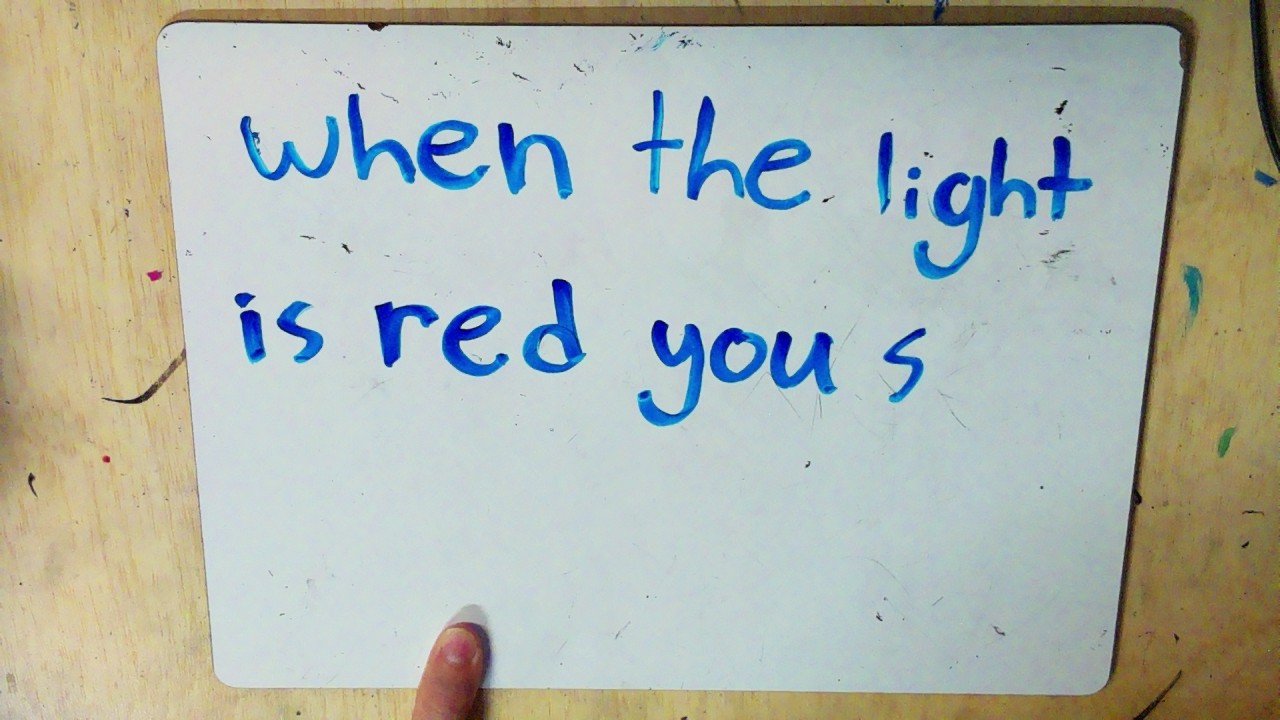 when the light
is red you s